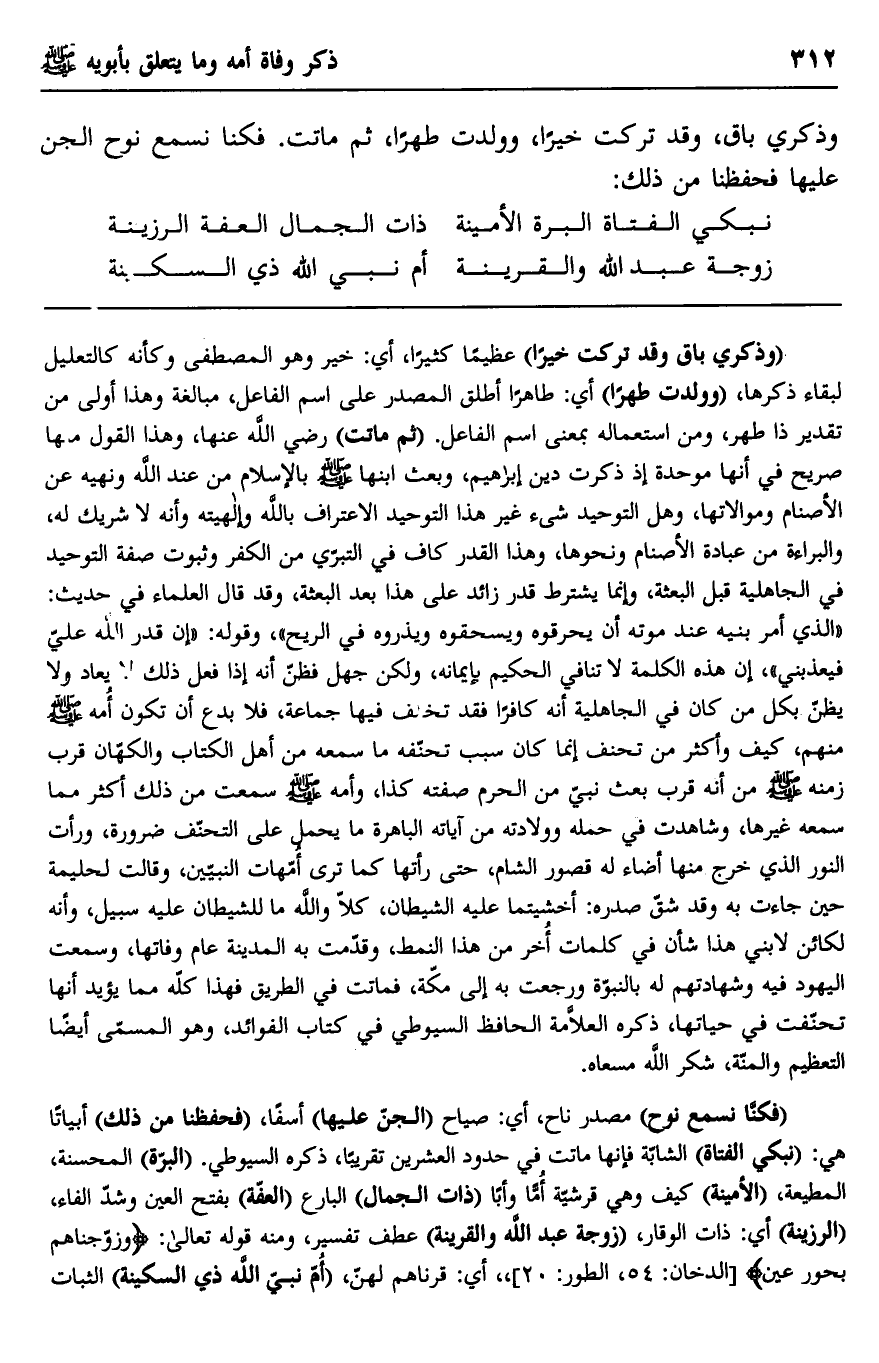 ٣١٢ ذكر وفاة أمه وما يتعلق بأبويه ﷺ
وذكري باق، وقد تركت خيرًا، وولدت طهرًا، ثم ماتت. فكنا نسمع نوح الجن
عليها فحفظنا من ذلك:
نبكي الفتاة البرة الأمينة ذات الجمال العفة الرزينة
زوجة عبد الله والقرينة أم نبي الله ذي السكينة
(وذكري باق وقد تركت خيرًا) عظيمًا كثيرًا، أي: خير وهو المصطفى وكأنه كالتعليل
لبقاء ذكرها، (وولدت طهرًا) أي: طاهرًا أطلق المصدر على اسم الفاعل، مبالغة وهذا أولى من
تقدير ذا طهر، ومن استعماله بمعنى اسم الفاعل. (ثم ماتت) رضي اللَّه عنها، وهذا القول منها
صريح في أنها موحدة إذ ذكرت دين إبراهيم، وبعث ابنها ﷺ بالإسلام من عند اللَّه ونهيه عن
الأصنام وموالاتها، وهل التوحيد شىء غير هذا التوحيد الاعتراف باللَّه وإلٰهيته وأنه لا شريك له،
والبراءة من عبادة الأصنام ونحوها، وهذا القدر كاف في التبرّي من الكفر وثبوت صفة التوحيد
في الجاهلية قبل البعثة، وإنما يشترط قدر زائد على هذا بعد البعثة، وقد قال العلماء في حديث:
«الذي أمر بنيه عند موته أن يحرقوه ويسحقوه ويذروه في الريح»، وقوله: «إن قدر اللّٰه عليّ
فيعذبني»، إن هذه الكلمة لا تنافي الحكيم بإيمانه، ولكن جهل فظنّ أنه إذا فعل ذلك لا يعاد ولا
يظنّ بكل من كان في الجاهلية أنه كافرًا فقد تخنف فيها جماعة، فلا بدع أن تكون أُمه ﷺ
منهم، كيف وأكثر من تحنف إنما كان سبب تحنّفه ما سمعه من أهل الكتاب والكهّان قرب
زمنه ﷺ من أنه قرب بعث نبيّ من الحرم صفته كذا، وأمه ﷺ سمعت من ذلك أكثر مما
سمعه غيرها، وشاهدت في حمله وولادته من آياته الباهرة ما يحمل على التحنّف ضرورة، ورأت
النور الذي خرج منها أضاء له قصور الشام، حتى رأتها كما ترى أُمّهات النبيّين، وقالت لحليمة
حين جاءت به وقد شقّ صدره: أخشيتما عليه الشيطان، كلاّ واللَّه ما للشيطان عليه سبيل، وأنه
لكائن لابني هذا شأن في كلمات أُخر من هذا النمط، وقدّمت به المدينة عام وفاتها، وسمعت
اليهود فيه وشهادتهم له بالنبوّة ورجعت به إلى مكّة، فماتت في الطريق فهذا كلّه مما يؤيد أنها
تحنّفت في حياتها، ذكره العلاَّمة الحافظ السيوطي في كتاب الفوائد، وهو المسمّى أيضًا
التعظيم والمنّة، شكر اللَّه مسعاه.
(فكنَّا نسمع نوح) مصدر ناح، أي: صياح (الجنّ عليها) أسفًا، (فحفظنا من ذلك) أبياتًا
هي: (نبكي الفتاة) الشابّة فإنها ماتت في حدود العشرين تقريبًا، ذكره السيوطي. (البرّة) المحسنة،
المطيعة، (الأمينة) كيف وهي قرشيّة أُمًّا وأبًا (ذات الجمال) البارع (العفّة) بفتح العين وشدّ الفاء،
(الرزينة) أي: ذات الوقار، (زوجة عبد اللَّه والقرينة) عطف تفسير، ومنه قوله تعالىٰ: ﴿وزوّجناهم
بحور عين﴾ [الدخان: ٥٤، الطور: ٢٠]،، أي: قرناهم لهنّ، (أُمّ نبيّ اللَّه ذي السكينة) الثبات